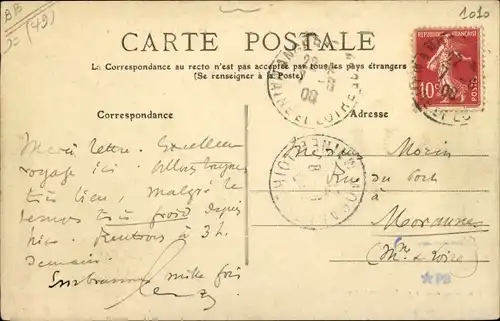 BB
(49)
1010
CARTE POSTALE
La Correspondance au recto n'est pas acceptée par tous les pays étrangers
(Se renseigner à la Poste)
Correspondance
Adresse
RÉPUBLIQUE FRANÇAISE
10c
MAINE ET LOIRE
Merci lettre. Excellent
voyage ici. Allons
très bien, malgré le
temps très froid depuis
hier. Rentrons à 3 h.
Demain.
Embrassons mille fois
Morin
Rue du Port
à
Morannes
(Mne & Loire)
*PB